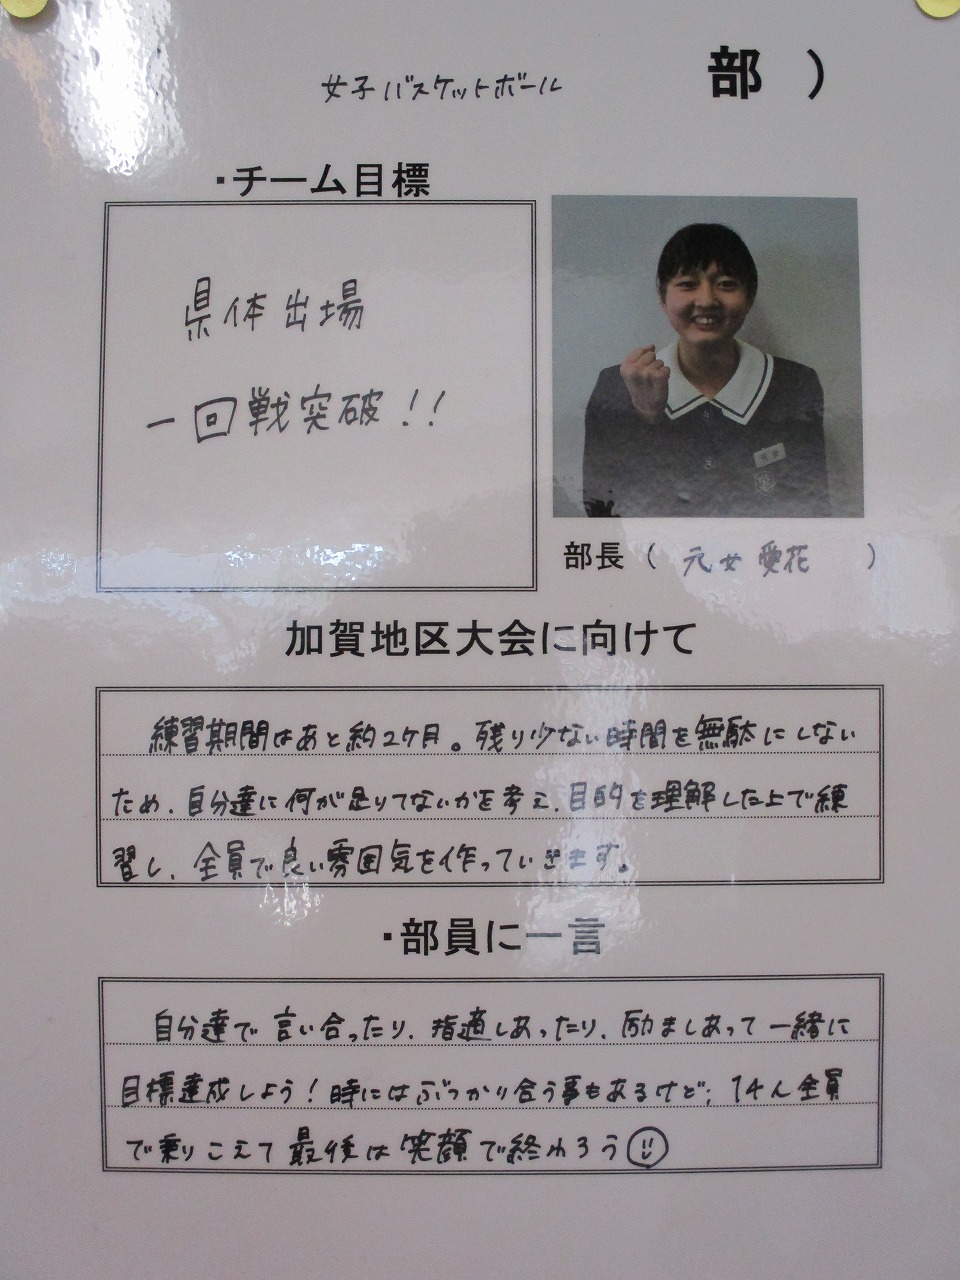 女子バスケットボール 部 ）
・チーム目標
県体出場
一回戦突破！！
部長（ 元女 愛花 ）
加賀地区大会に向けて
練習期間はあと約2ケ月。残り少ない時間を無駄にしない
ため、自分達に何が足りてないかを考え、目的を理解した上で練
習し、全員で良い雰囲気を作っていきます。
・部員に一言
自分達で言い合ったり、指適しあったり、励ましあって一緒に
目標達成しよう！時にはぶつかり合う事もあるけど、14人全員
で乗りこえて最後は笑顔で終わろう